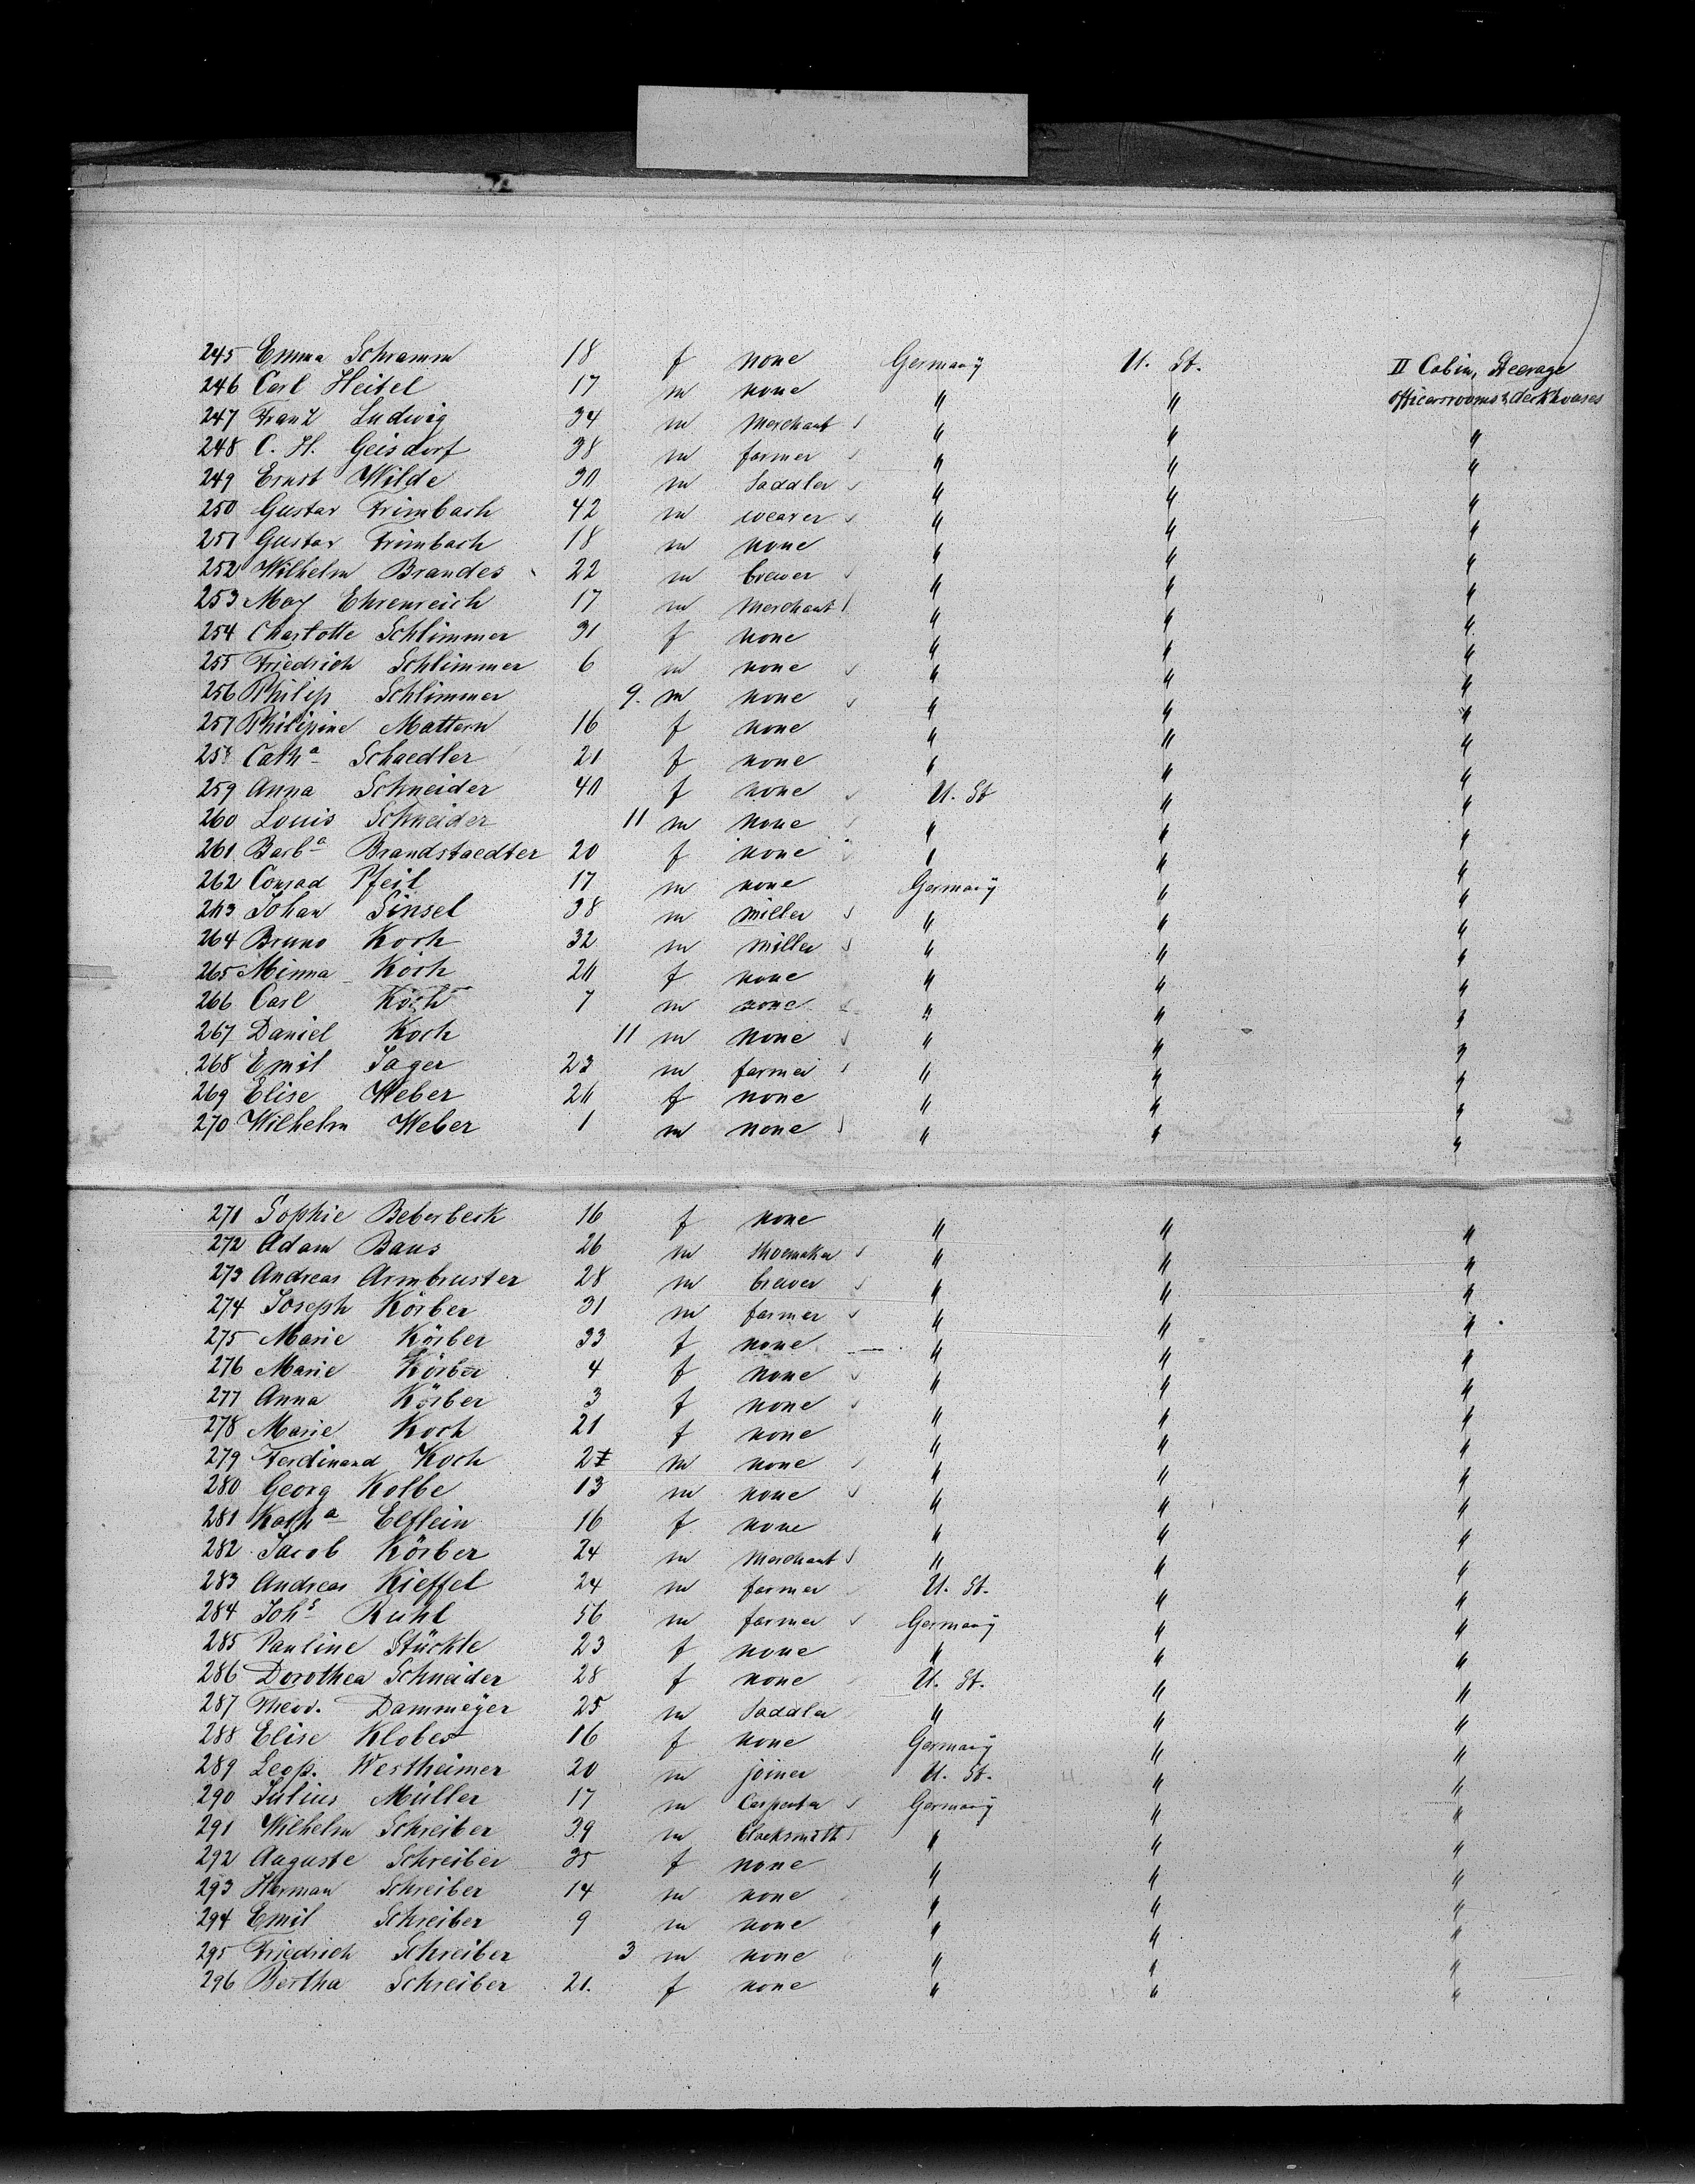 245 Emma Schramm 18 f none Germany U. St. II Cabin, Steerage
officersrooms & deckhouses
246 Carl Heitel 17 m none " "
247 Franz Ludwig 34 m Merchant " " "
248 C. H. Geisdorf 38 m farmer " " "
249 Ernst Wilde 30 m Saddler " " "
250 Gustav Trimbach 42 m weaver " " "
251 Gustav Trimbach 18 m none " " "
252 Wilhelm Brandes 22 m brewer " " "
253 Max Ehrenreich 17 m Merchant " " "
254 Charlotte Schlimmer 31 f none " " "
255 Friedrich Schlimmer 6 m none " " "
256 Philip Schlimmer 9. m none " " "
257 Philipine Mattern 16 f none " " "
258 Cath a Schaedler 21 f none " " "
259 Anna Schneider 40 f none U. St " "
260 Louis Schneider 11 m none " " "
261 Barb a Brandstaedter 20 f none " " "
262 Conrad Pfeil 17 m none Germany " "
263 Johan Sinsel 38 m miller " " "
264 Bruno Koch 32 m miller " " "
265 Minna Koch f none " " "
266 Carl Koch 7 m none " " "
267 Daniel Koch 11 m none " " "
268 Emil Jager 23 m farmer " " "
269 Elise Weber f none " " "
270 Wilhelm Weber 1 m none " " "
271 Sophie Beberbeck 16 f none " " "
272 Adam Baus 26 m shoemaker " " "
273 Andreas Armbruster 28 m brewer " " "
274 Joseph Körber 31 m farmer " " "
275 Marie Körber 33 f none " " "
276 Marie Körber 4 f none " " "
277 Anna Körber 3 f none " " "
278 Marie Koch 21 f none " " "
279 Ferdinand Koch m none " " "
280 Georg Kolbe 13 m none " " "
281 Kath a Elflein 16 f none " " "
282 Jacob Körber 24 m Merchant " " "
283 Andreas Kieffel 24 m farmer U. St. " "
284 Joh s Ruhl 56 m farmer Germany " "
285 Pauline Stückle 23 f none " " "
286 Dorothea Schneider 28 f none U. St. " "
287 Theod. Dammeyer 25 m Saddler " " "
288 Elise Klober 16 f none Germany " "
289 Leop. Westheimer 20 m joiner U. St. " "
290 Julius Müller 17 m Carpenter Germany " "
291 Wilhelm Schreiber 39 m blacksmith " " "
292 Auguste Schreiber 35 f none " " "
293 Herman Schreiber 14 m none " " "
294 Emil Schreiber 9 m none " " "
295 Friedrich Schreiber 3 m none " " "
296 Bertha Schreiber 21. f none " " "